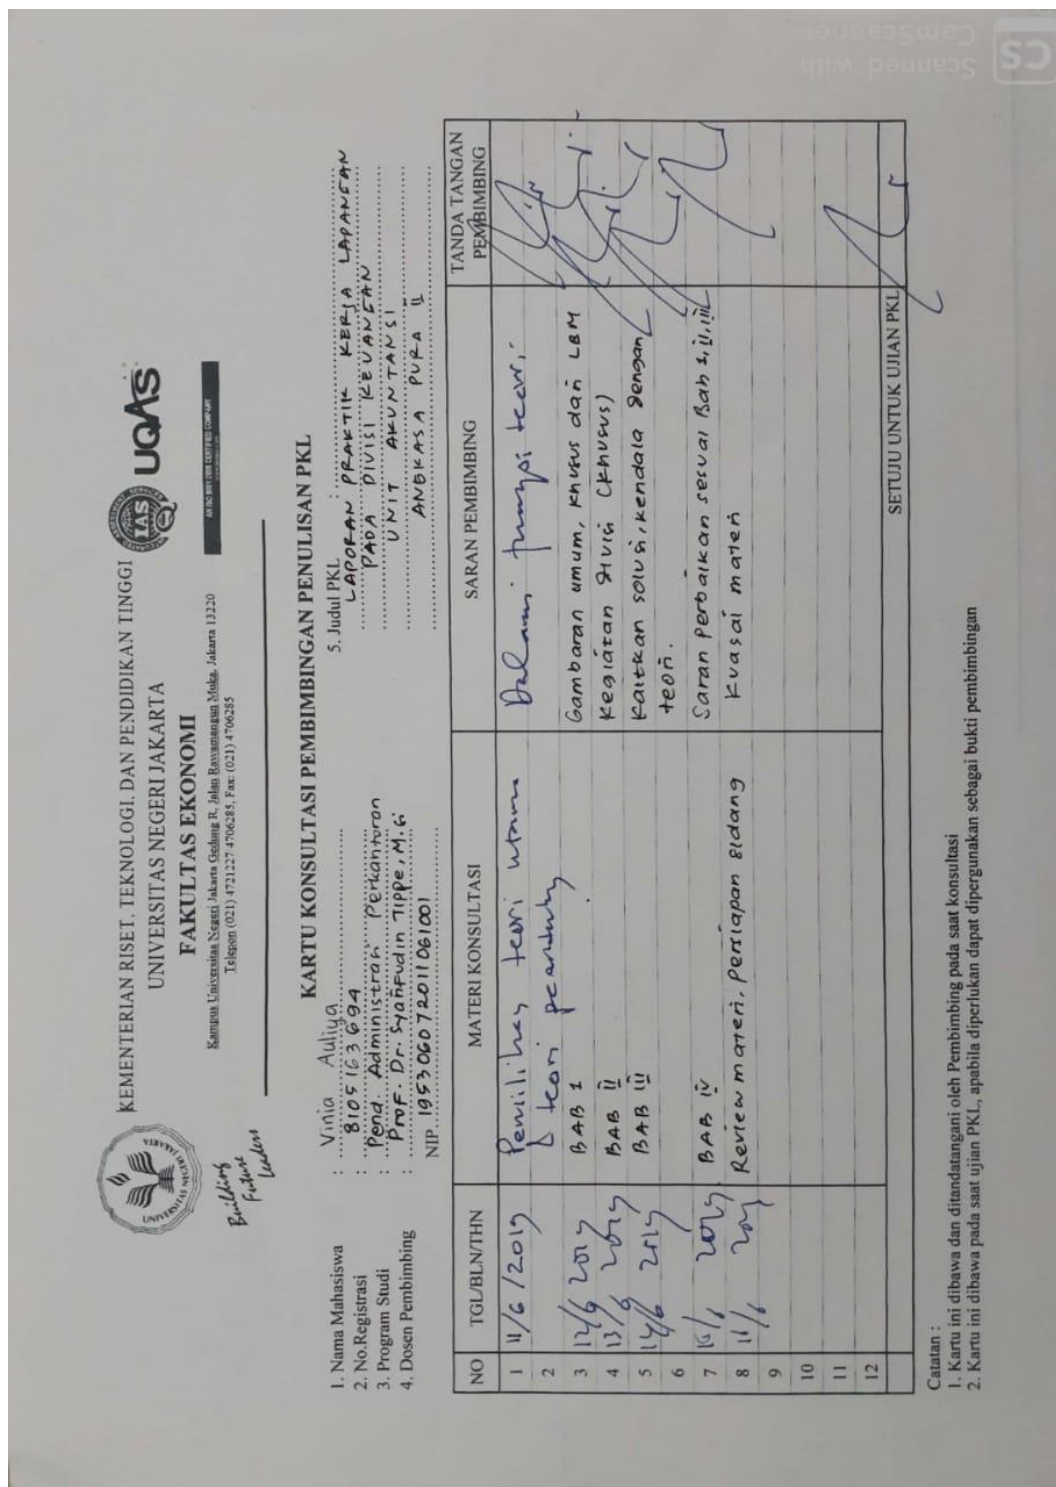 KEMENTERIAN RISET, TEKNOLOGI, DAN PENDIDIKAN TINGGI
UNIVERSITAS NEGERI JAKARTA
FAKULTAS EKONOMI
Kampus Universitas Negeri Jakarta Gedung R, Jalan Rawamangun Muka, Jakarta 13220
Telepon (021) 4721227/4706285, Fax: (021) 4706285
UNIVERSITAS NEGERI JAKARTA
Building
Future
Leaders
UQAS
KARTU KONSULTASI PEMBIMBINGAN PENULISAN PKL
1. Nama Mahasiswa : Vinia Auliya
2. No.Registrasi : 8105163694
3. Program Studi : Pend. Administrasi Perkantoran
4. Dosen Pembimbing : Prof. Dr. Syarifudin Tippe, M.Si
NIP. 195306072011061001
5. Judul PKL :
LAPORAN PRAKTIK KERJA LAPANGAN
PADA DIVISI KEUANGAN
UNIT AKUNTANSI
ANGKASA PURA II
NO TGL/BLN/THN MATERI KONSULTASI SARAN PEMBIMBING TANDA TANGAN PEMBIMBING
1 11/6/2019 Pemilihan teori utama Dalami fungsi teori
2 & teori
3 12/6 2019 BAB I Gambaran umum, khusus dari LBM
4 13/6 2019 BAB II Kegiatan divisi (khusus)
5 14/6 2019 BAB III Kaitkan solusi, kendala dengan
6 teori.
7 BAB IV Saran Perbaikan sesuai Bab I, II, III
8 Review materi, Persiapan sidang Kuasai materi
9
10
11
12
SETUJU UNTUK UJIAN PKL
Catatan :
1. Kartu ini dibawa dan ditandatangani oleh Pembimbing pada saat konsultasi
2. Kartu ini dibawa pada saat ujian PKL, apabila diperlukan dapat dipergunakan sebagai bukti pembimbingan
CS Scanned with
CamScanner